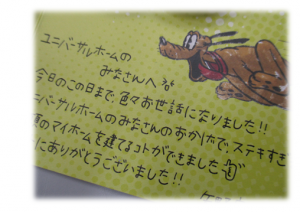 ユニバーサルホームの
みなさんへ
今日のこの日まで、色々お世話になりました!!
ニバーサルホームのみなさんのおかげで、ステキすぎ
のマイホームを建てるコトができました
にありがとうございました!!